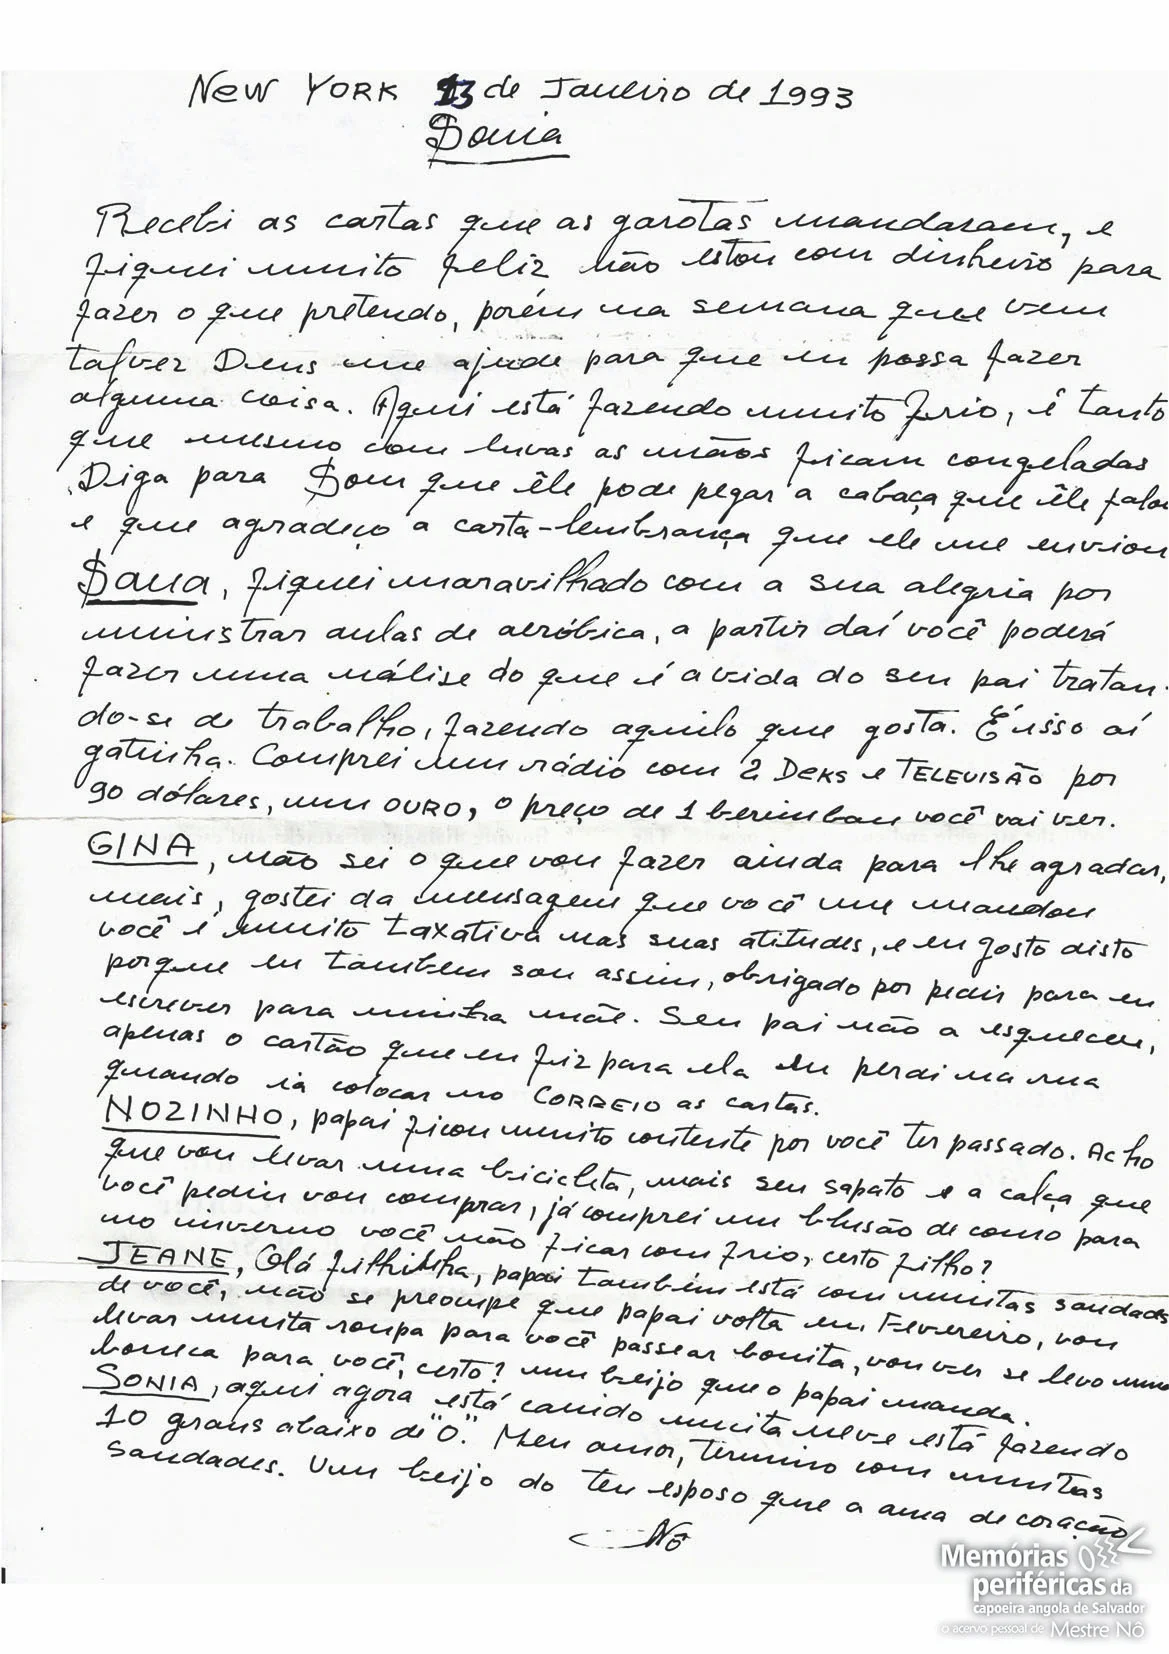 New York 13 de Janeiro de 1993
Sonia
Recebi as cartas que as garotas mandaram, e
fiquei muito feliz não estou com dinheiro para
fazer o que pretendo, porém na semana que vem
talvez Deus me ajude para que eu possa fazer
alguma coisa. Aqui está fazendo muito frio, é tanto
que mesmo com luvas as mãos ficam congeladas
Diga para Som que êle pode pegar a cabaça que êle falou
e que agradeço a carta-lembrança que ele me enviou
Sana, fiquei maravilhado com a sua alegria por
ministrar aulas de aeróbica, a partir daí você poderá
fazer uma nálise do que é a vida do seu pai tratan-
do-se de trabalho, fazendo aquilo que gosta. É isso aí
gatinha. Comprei um rádio com 2 Deks e TELEVISÃO por
90 dólares, um OURO, o preço de 1 berimbau você vai ver.
GINA, não sei o que vou fazer ainda para lhe agradar,
mais, gostei da mensagem que você me mandou
você é muito taxativa nas suas atitudes, e eu gosto disto
porque eu também sou assim, obrigado por pedir para eu
escrever para minha mãe. Seu pai não a esqueceu,
apenas o cartão que eu fiz para ela eu perdi na rua
quando ia colocar no CORREIO as cartas.
NOZINHO, papai ficou muito contente por você ter passado. Acho
que vou levar uma bicicleta, mais seu sapato e a calça que
você pediu vou comprar, já comprei um blusão de couro para
no inverno você não ficar com frio, certo filho?
JEANE, Olá filhinha, papai também está com muitas saudades
de você, não se preocupe que papai volta em Fevereiro, vou
levar muita roupa para você passear bonita, vou ver se levo uma
boneca para você, certo? um beijo que o papai manda.
SONIA, aqui agora está caindo muita neve está fazendo
10 graus abaixo de "0". Meu amor, termino com muitas
saudades. Um beijo do teu esposo que a ama de coração
Nô
Memórias
periféricas da
capoeira angola de Salvador
o acervo pessoal de Mestre Nô